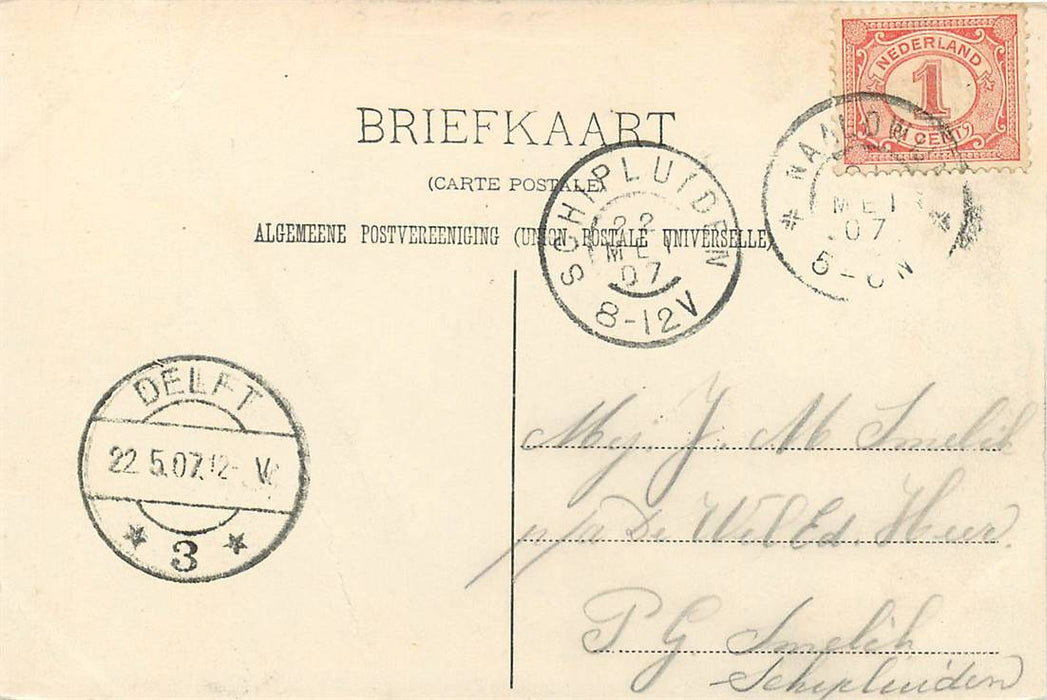 NEDERLAND
1
CENT
BRIEFKAART
(CARTE POSTALE)
ALGEMEENE POSTVEREENIGING (UNION POSTALE UNIVERSELLE)
NAARDEN
MEI
07
5-
SCHIPLUIDEN
22
MEI
07
8-12V
DELFT
22.5.07.12- V
3
Mej. J. M Smelik
p/a De WelEd. Heer.
P G Smelik
Schipluiden